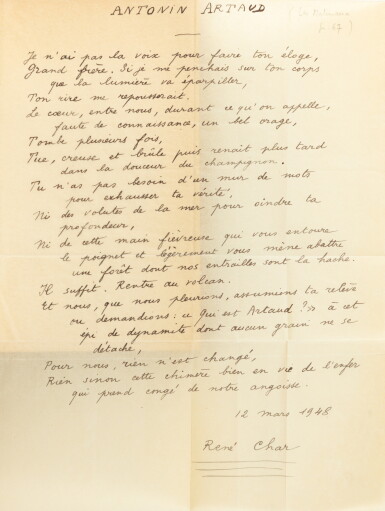 ANTONIN ARTAUD
Je n'ai pas la voix pour faire ton éloge,
Grand frère. Si je me penchais sur ton corps
que la lumière va éparpiller,
Ton rire me repousserait.
Le cœur, entre nous, durant ce qu'on appelle,
faute de connaissance, un bel orage,
Tombe plusieurs fois,
Tue, creuse et brûle puis renaît plus tard
dans la douceur du champignon.
Tu n'as pas besoin d'un mur de mots
pour exhausser ta vérité,
Ni des volutes de la mer pour oindre ta
profondeur,
Ni de cette main fiévreuse qui vous entoure
le poignet et légèrement vous mène abattre
une forêt dont nos entrailles sont la hache.
Il suffit. Rentre au volcan.
Et nous, que nous pleurions, assumions ta relève
ou demandions : « Qui est Artaud ? » à cet
épi de dynamite dont aucun grain ne se
détache,
Pour nous, rien n'est changé,
Rien sinon cette chimère bien en vie de l'enfer
qui prend congé de notre angoisse.
12 mars 1948
René Char